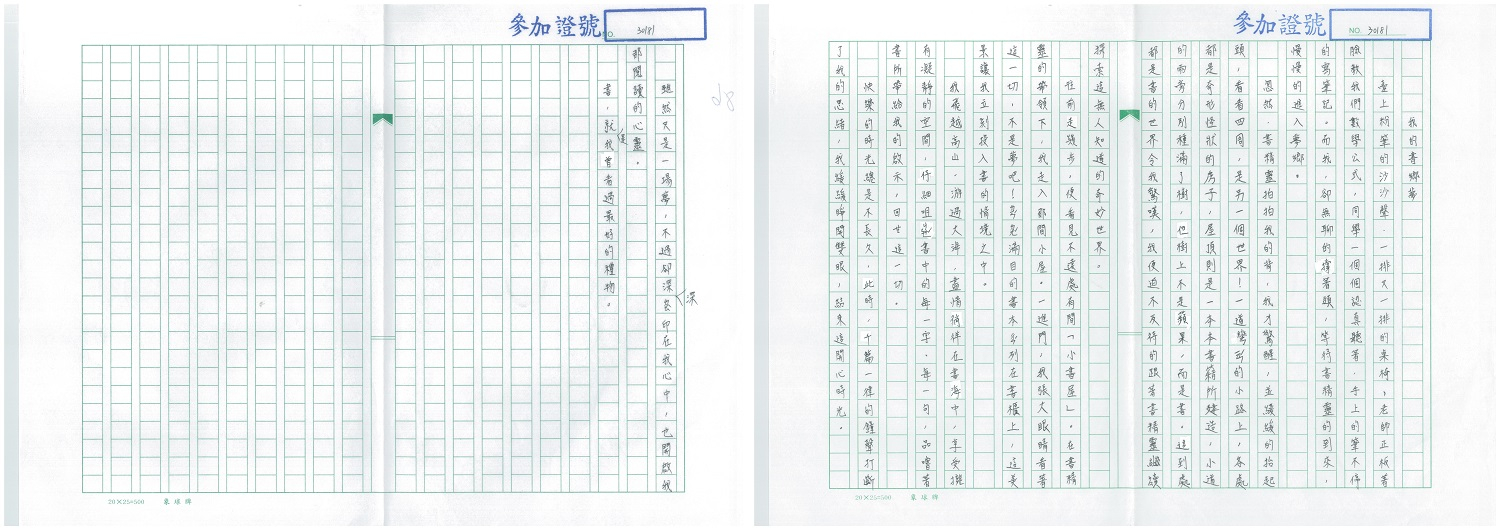 參加證號
NO. 30181
我的書鄉夢
臺上粉筆的沙沙聲，一排又一排的桌椅，老師正板著
臉教我們數學公式，同學一個個認真聽著，手上的筆不停
的寫筆記。而我，卻無聊的撐著頭，等待書精靈的到來，
慢慢的進入夢鄉。
忽然，書精靈拍拍我的背，我才驚醒，並緩緩的抬起
頭，看看四周，是另一個世界！一道彎彎的小路上，各處
都是奇形怪狀的房子，屋頂則是一本本書籍所建造，小道
的兩旁分別種滿了樹，但樹上不是蘋果，而是書。這到處
都是書的世界令我驚嘆，我便迫不及待的跟著書精靈繼續
探索這無人知道的奇妙世界。
往前走幾步，便看見不遠處有間「小書屋」。在書精
靈的帶領下，我走入那間小屋。一進門，我張大眼睛看著
這一切，不是夢吧！滿目的書本列在書櫃上，這美
景讓我立刻投入書的情境之中。
我飛越高山，游過大海，盡情徜徉在書海中，享受擁
有凝靜的空間，仔細咀嚼書中的每一字、每一句，品嘗著
書所帶給我的啟示，回甘這一切。
快樂的時光總是不長久，此時，千篇一律的鐘聲打斷
了我的思緒，我緩緩睜開雙眼，結束這開心時光。
20×25=500 象球牌
參加證號
NO. 30181
雖然只是一場夢，不過卻深深印在我心中，也開啟我
那閱讀的心靈。
書，就是我曾看過最好的禮物。
20×25=500 象球牌